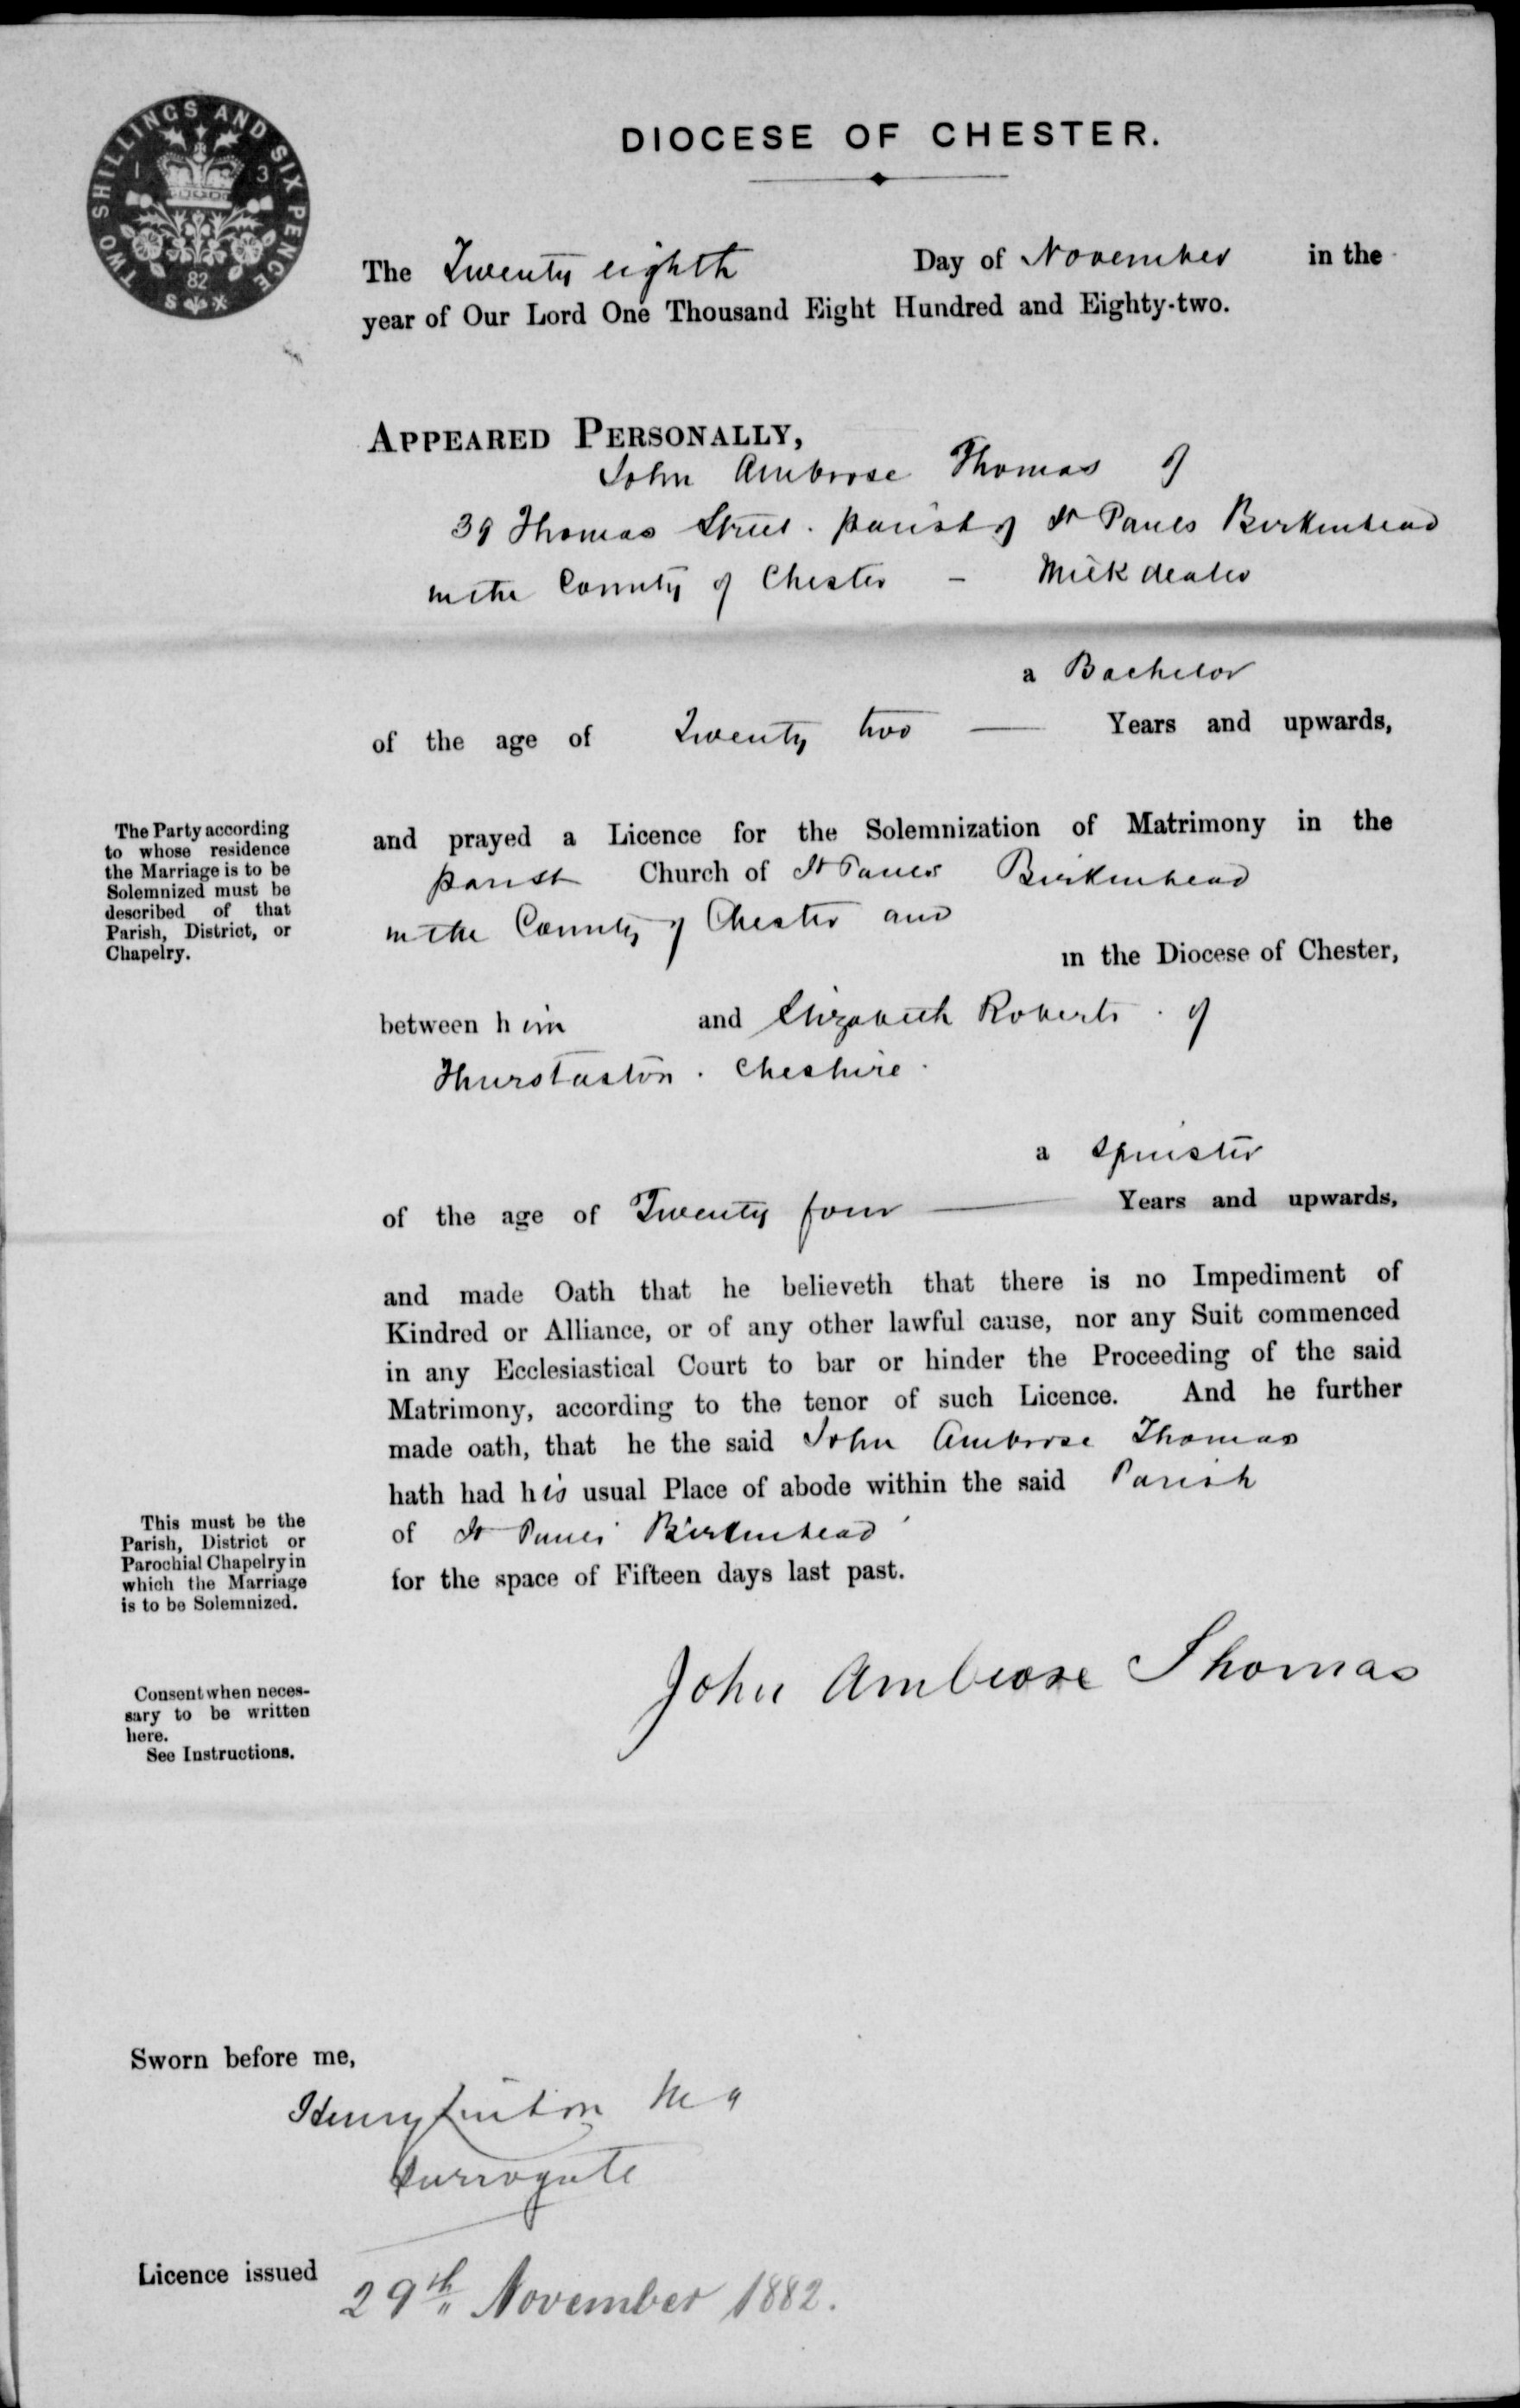 TWO SHILLINGS AND SIX PENCE
1 3
82
S X
DIOCESE OF CHESTER.
The Twenty eighth Day of November in the
year of Our Lord One Thousand Eight Hundred and Eighty-two.
APPEARED PERSONALLY,
John Ambrose Thomas of
39 Thomas Street. parish of St Pauls Birkenhead
in the County of Chester – Milk dealer
a Bachelor
of the age of Twenty two — Years and upwards,
The Party according
to whose residence
the Marriage is to be
Solemnized must be
described of that
Parish, District, or
Chapelry.
and prayed a Licence for the Solemnization of Matrimony in the
parish Church of St Pauls Birkenhead
in the County of Chester and
in the Diocese of Chester,
between him and Elizabeth Roberts . of
Thurstaston . Cheshire .
a Spinster
of the age of Twenty four — Years and upwards,
and made Oath that he believeth that there is no Impediment of
Kindred or Alliance, or of any other lawful cause, nor any Suit commenced
in any Ecclesiastical Court to bar or hinder the Proceeding of the said
Matrimony, according to the tenor of such Licence. And he further
made oath, that he the said John Ambrose Thomas
hath had his usual Place of abode within the said Parish
of St Pauls Birkenhead
for the space of Fifteen days last past.
This must be the
Parish, District or
Parochial Chapelry in
which the Marriage
is to be Solemnized.
John Ambrose Thomas
Consent when neces-
sary to be written
here.
See Instructions.
Sworn before me,
Henry Linton M A
Surrogate
Licence issued 29th November 1882.